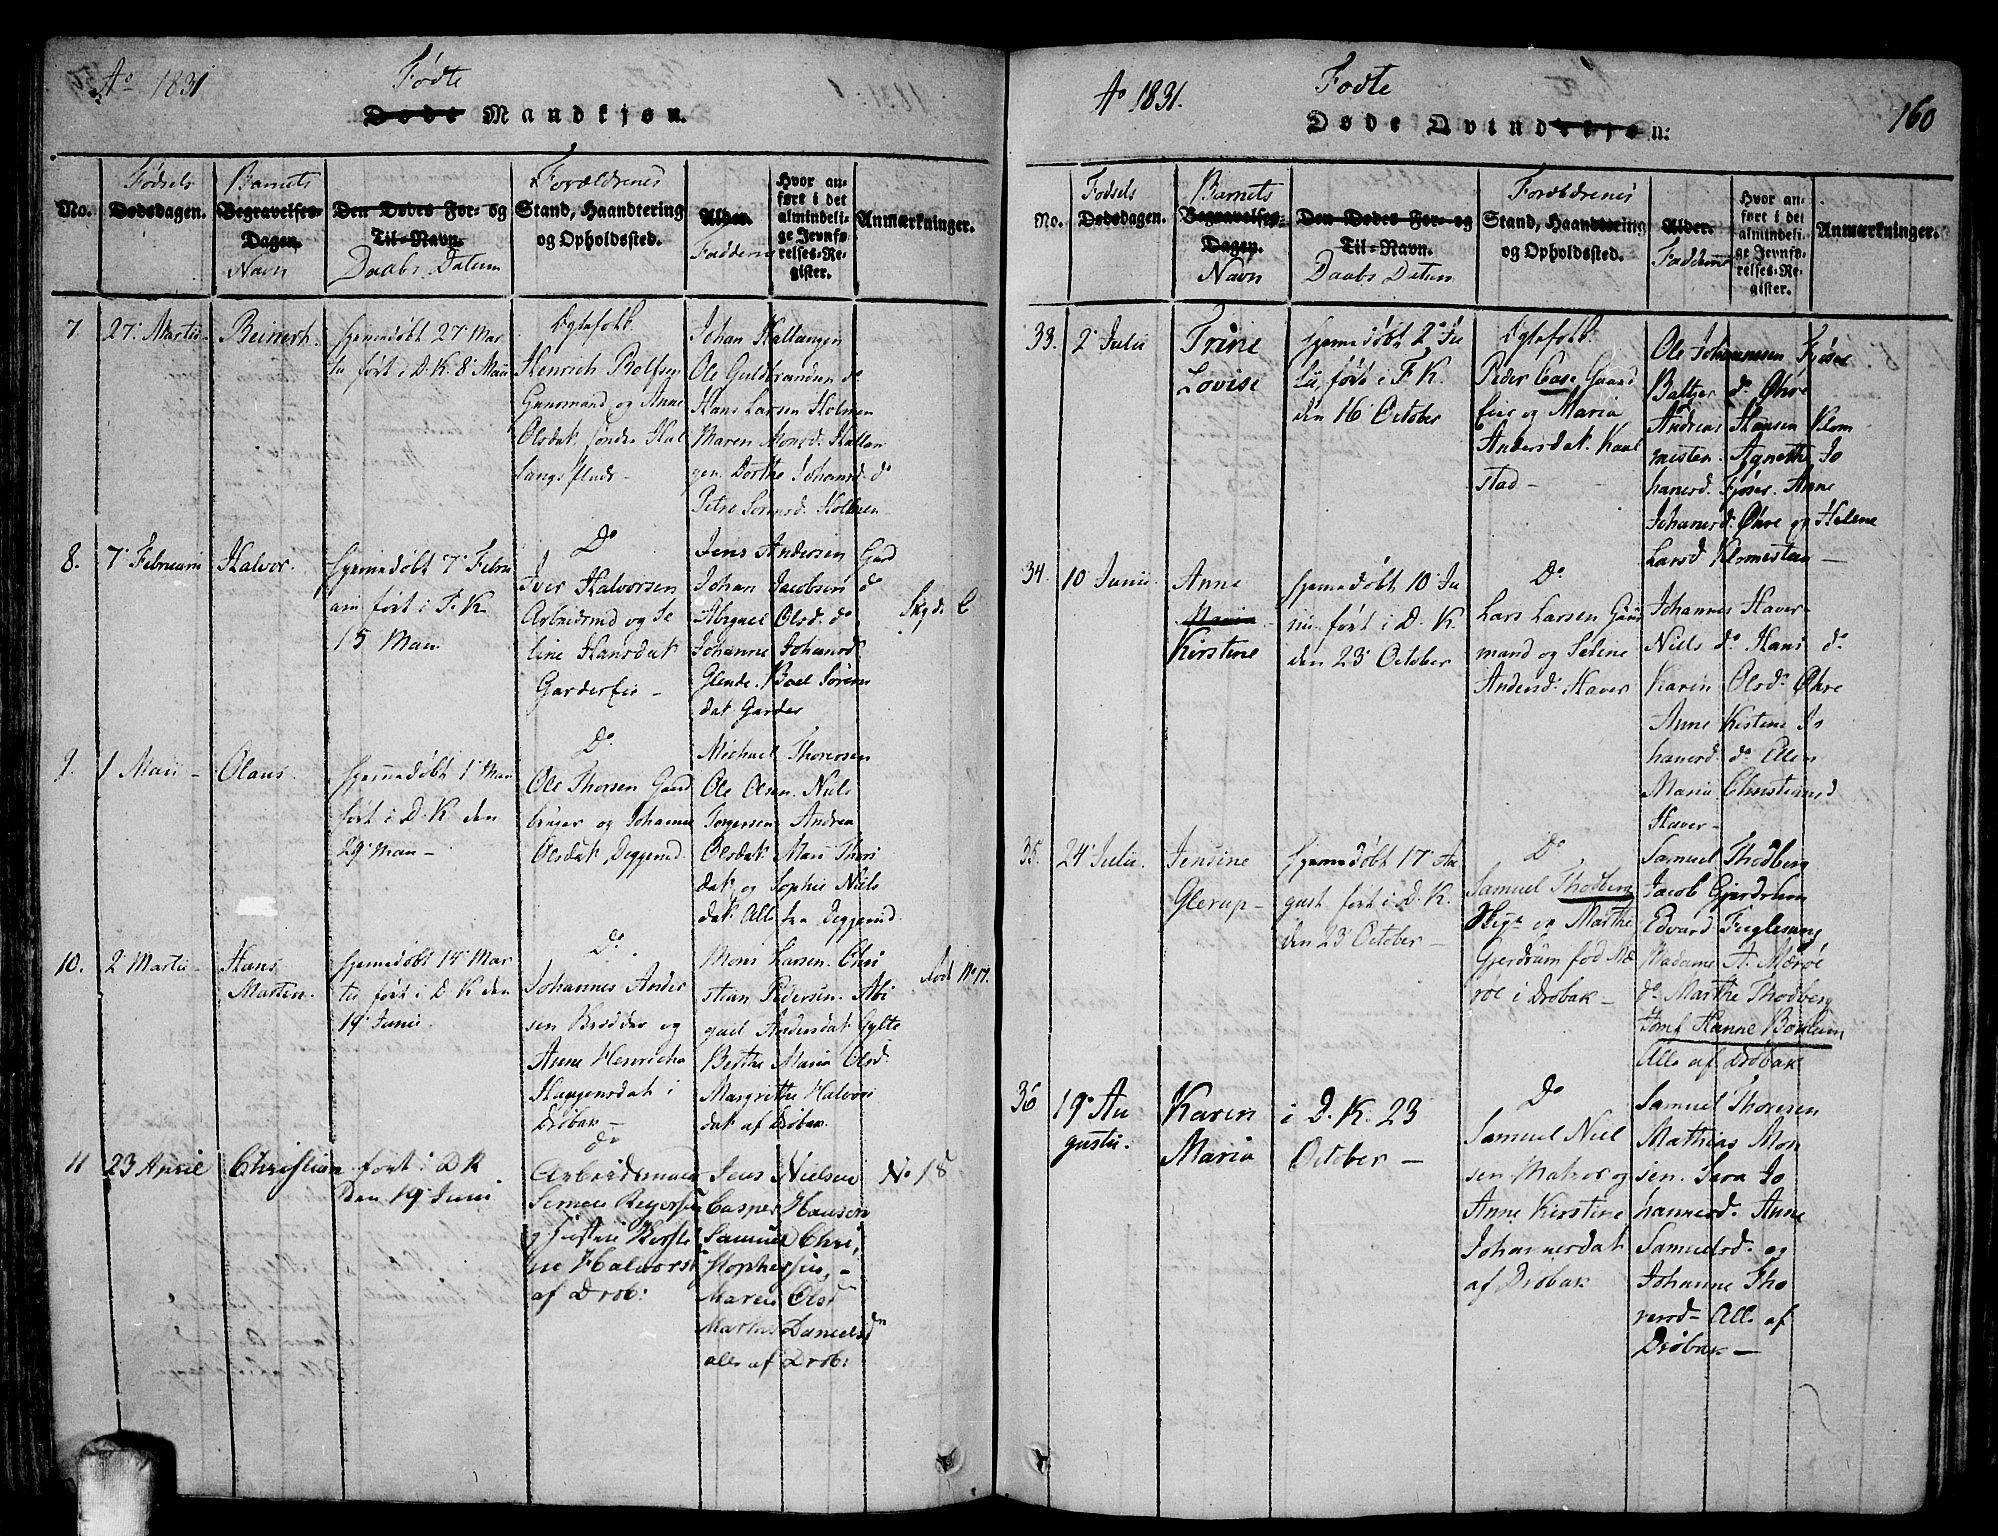 Ao 1831
Fødte
Døde Mandkjøn.
No.
Fødsels
Dødsdagen.
Barnets
Begravelses-
Dagen.
Navn
Den Dødes For- og
Til-Navn.
Daabs Datum
Forældrenes
Stand, Haandtering
og Opholdssted.
Alder.
Faddere
Hvor an-
ført i det
almindeli-
ge Jevnfø-
relses-Re-
gister.
Anmærkninger.
7
27 Martii
Beinert.
hjemmedøbt 27 Mar
tii ført i D. K. 8 Maii
Ægtefolk.
Henrich Rolfsen
Gaardmand og Anne
Olsdat. søndre Hal
langspladr
Johan Hallangen
Ole Guldbrandsen do
Hans Larsen Holmen
Maren Monsd. Hallan
gen. Dorthe Johansd. do
Petre Sørensd. Holmen
8.
7 Februarii
Halvor.
hjemmedøbt 7 Febru
arii ført i F. K.
15 Maii
Do
Iver Halvorsen
Arbeidsmd og Se
line Hansdat.
Gardereie -
Jens Andersen Gard
Johan Jacobsen do
Abigael Olsd. do
Johanne Johansd.
Glende. Boel Sørens
dat. Garder
9.
1 Maii -
Olaus.
hjemmedøbt 1 Maii
ført i D. K. den
29 Maii -
Do
Ole Thorsen Gaard
bruger og Johanne
Olsdat. Deggerud
Michael Thoresen
Ole Olsen. Niels
Jorgensen Andrea
Olsdat. Mari Thors
dat. og Sophie Niels
dat. Alle fra Deggerud.
10.
2 Martii -
Hans
Marten.
hjemmedøbt 15 Mar
tii ført i D. K. den
19 Junii.
Do
Johannes Ander
sen Brødder og
Anne Henricha
Haagensdat. i
Drøbak -
Mons Larsen. Chri
stian Pedersen. Abi
gael Andersdat. Gylte
Berthe Maria Olsd.
Margrethe Halvors
dat. af Drøbak.
No 17.
11
23 April
Christian
ført i D K
Den 19 Junii
do
Arbeidsmand
af Drøb:
Jens Nielsen
Casper Hansen
Samuel Chri,
stophersen, -
Maren Olsd
Marthe Danielsd
alle af Drøb:
No 18
Ao 1831.
Fødte
Døde Qvindekjøn:
160
No.
Fødsels
Dødsdagen.
Barnets
Begravelses-
Dagen.
Navn
Den Dødes For- og
Til-Navn.
Daabs Datum
Forældrenes
Stand, Haandtering
og Opholdssted.
Alder.
Faddere
Hvor an-
ført i det
almindeli-
ge Jevnfø-
relses-Re-
gister.
Anmærkninger.
33.
2 Julii
Trine
Lovise
hjemmedøbt 2 Ju
lii, født i F. K.
den 16 October
Ægtefolk.
Peder Case Gaard
eier og Maria
Andersdat. Kaal
stad -
Ole Johannesen Fjøser
Baltzer do Øhre
Andreas Hansen Klom
mesten. Agnethe Jo
hanesd. Fjøser. Anne
Johanesd. Øhre og Helene
Larsd Klomesteen -
34.
10 Junii.
Anne
Maria
Kirstine
hjemmedøbt 10 Ju
nii ført i D. K.
den 23 October
Do
Lars Larsen Gaard
mand og Seline
Andersd. Haver
Johannes Haver
Niels do Hans do
Karen Olsd. Øhre
Anne Kirstine Jo
hanesd. do Ellen
Maria Christiansd
Haver -
35.
24 Julii.
Jensine
Glerup -
hjemmedøbt 17 Au
gust ført i D. K.
den 23 October -
Do
Samuel Thodberg
og Marthe
Gjerdrum fød Næ
røe i Drøbak -
Samuel Thodberg
Jacob Gjerdrum
Edvard Fuglesang
Madame A. Mærøe
do Marthe Thodberg
Jomf Hanne Boylum
Alle af Drøbak
36
19 Au
gustii.
Karen
Maria
i D. K. 23
October -
Do
Samuel Niel
sen Matros og
Anne Kirstine
Johannesdat
af Drøbak
Samuel Thoresen
Mathias Mon
sen. Sara Jo
hannesd. Anne
Samuelsd. og
Johanne Tho
resd - Alle af
Drøbak -